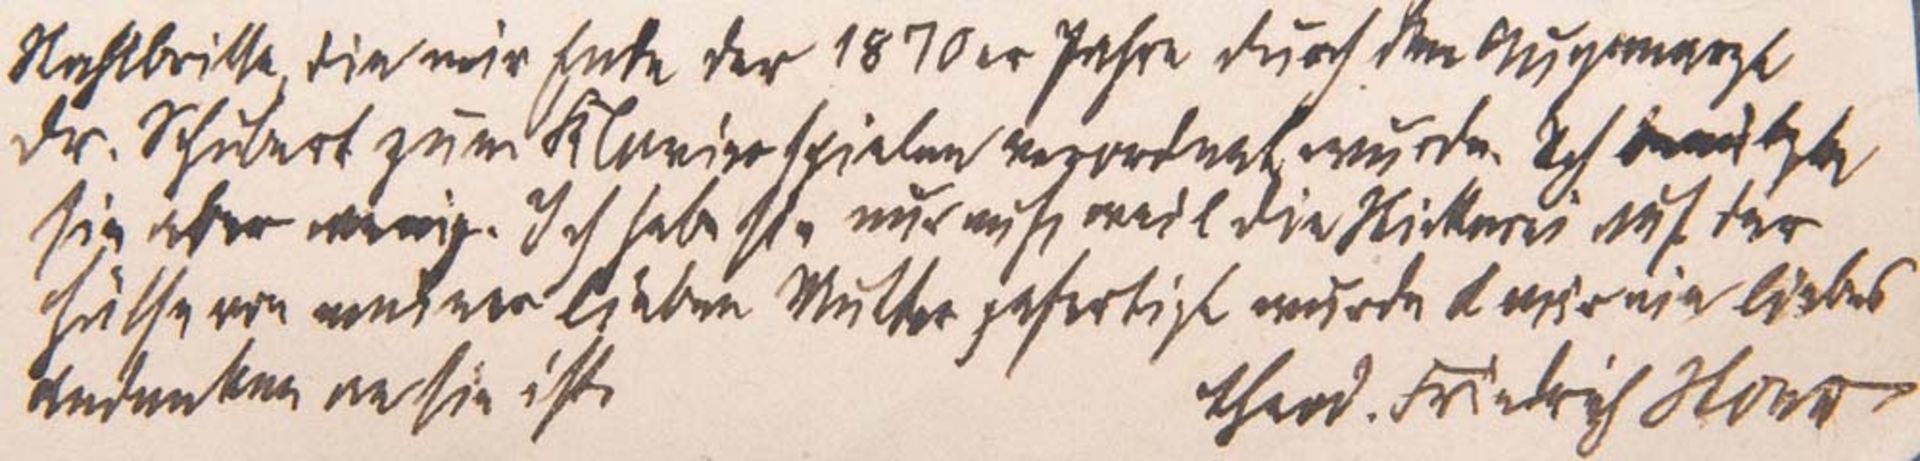 Stahlbrille, die mir Ende der 1870er Jahre durch den Augenarzt
Dr. Schubert zum Klavierspielen verordnet wurde. Ich benützte
sie aber wenig. Ich habe sie nur auf, weil die Stickerei auf der
Hülse von meiner lieben Mutter gefertigt wurde & mir ein liebes
Andenken an sie ist.
Theod. Friedrich